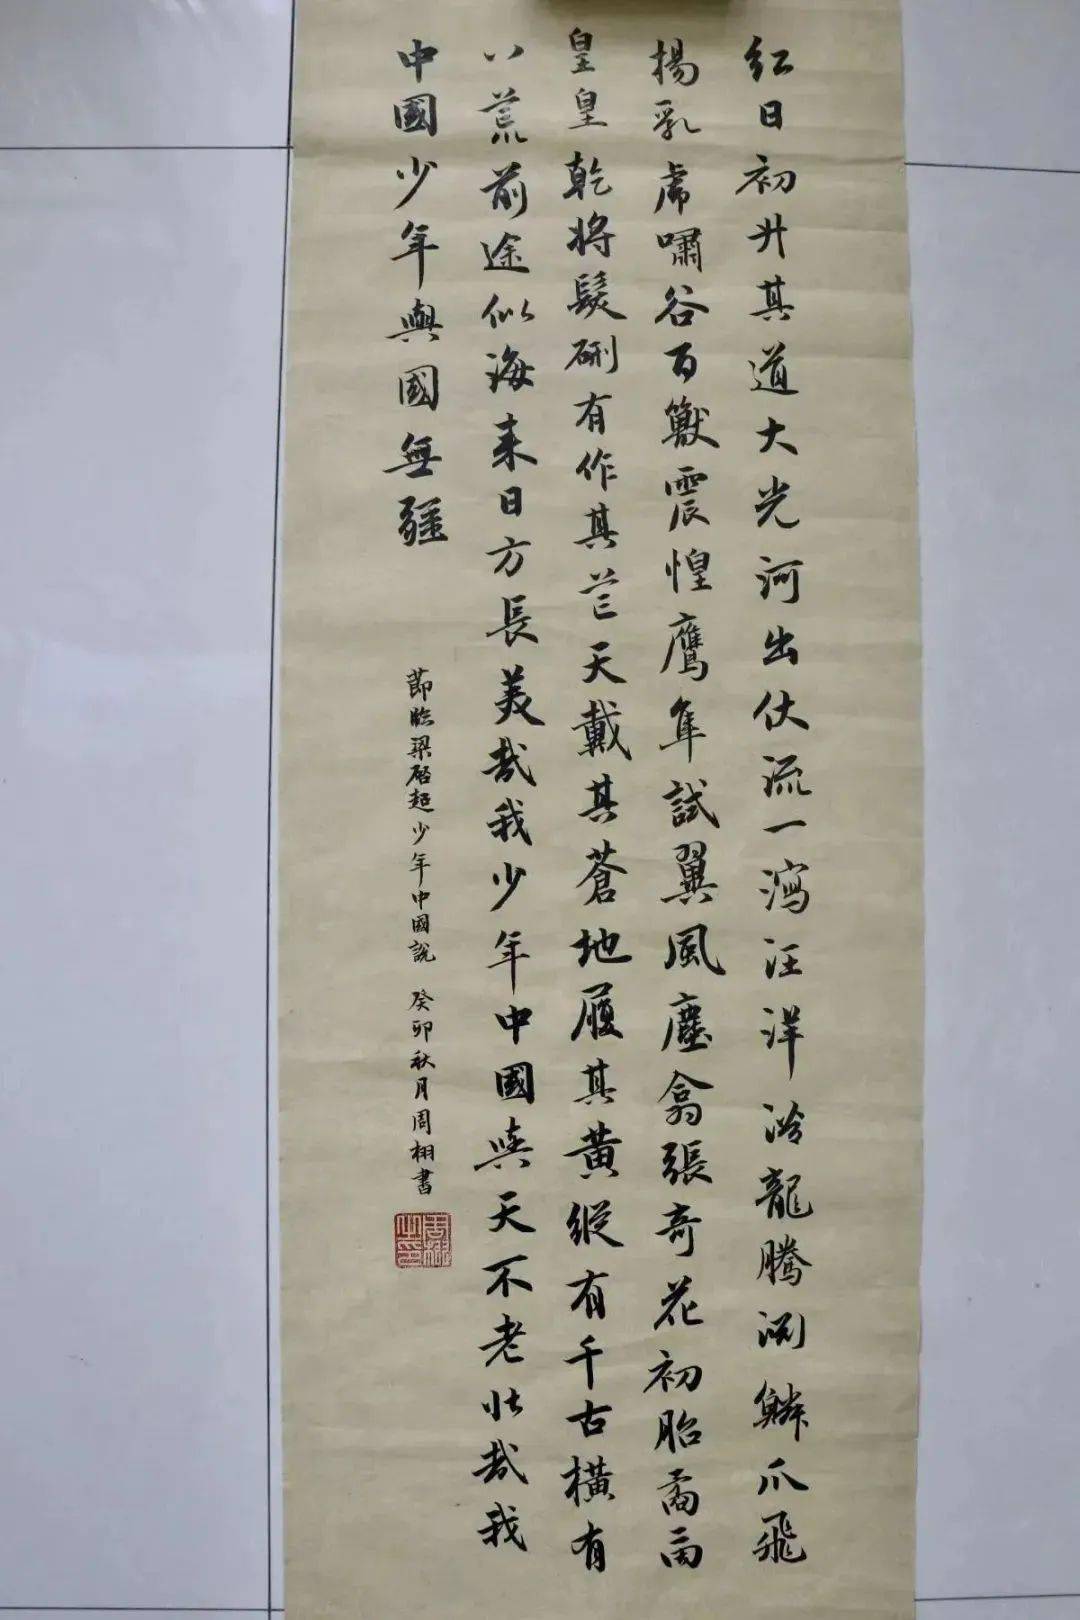 紅日初升其道大光河出伏流一瀉汪洋潛龍騰淵鱗爪飛
揚乳虎嘯谷百獸震惶鷹隼試翼風塵翕張奇花初胎矞矞
皇皇乾將發硎有作其芒天戴其蒼地履其黃縱有千古橫有
八荒前途似海來日方長美哉我少年中國與天不老壯哉我
中國少年與國無疆
節臨梁啟超少年中國說 癸卯秋月周栩書
周栩之印